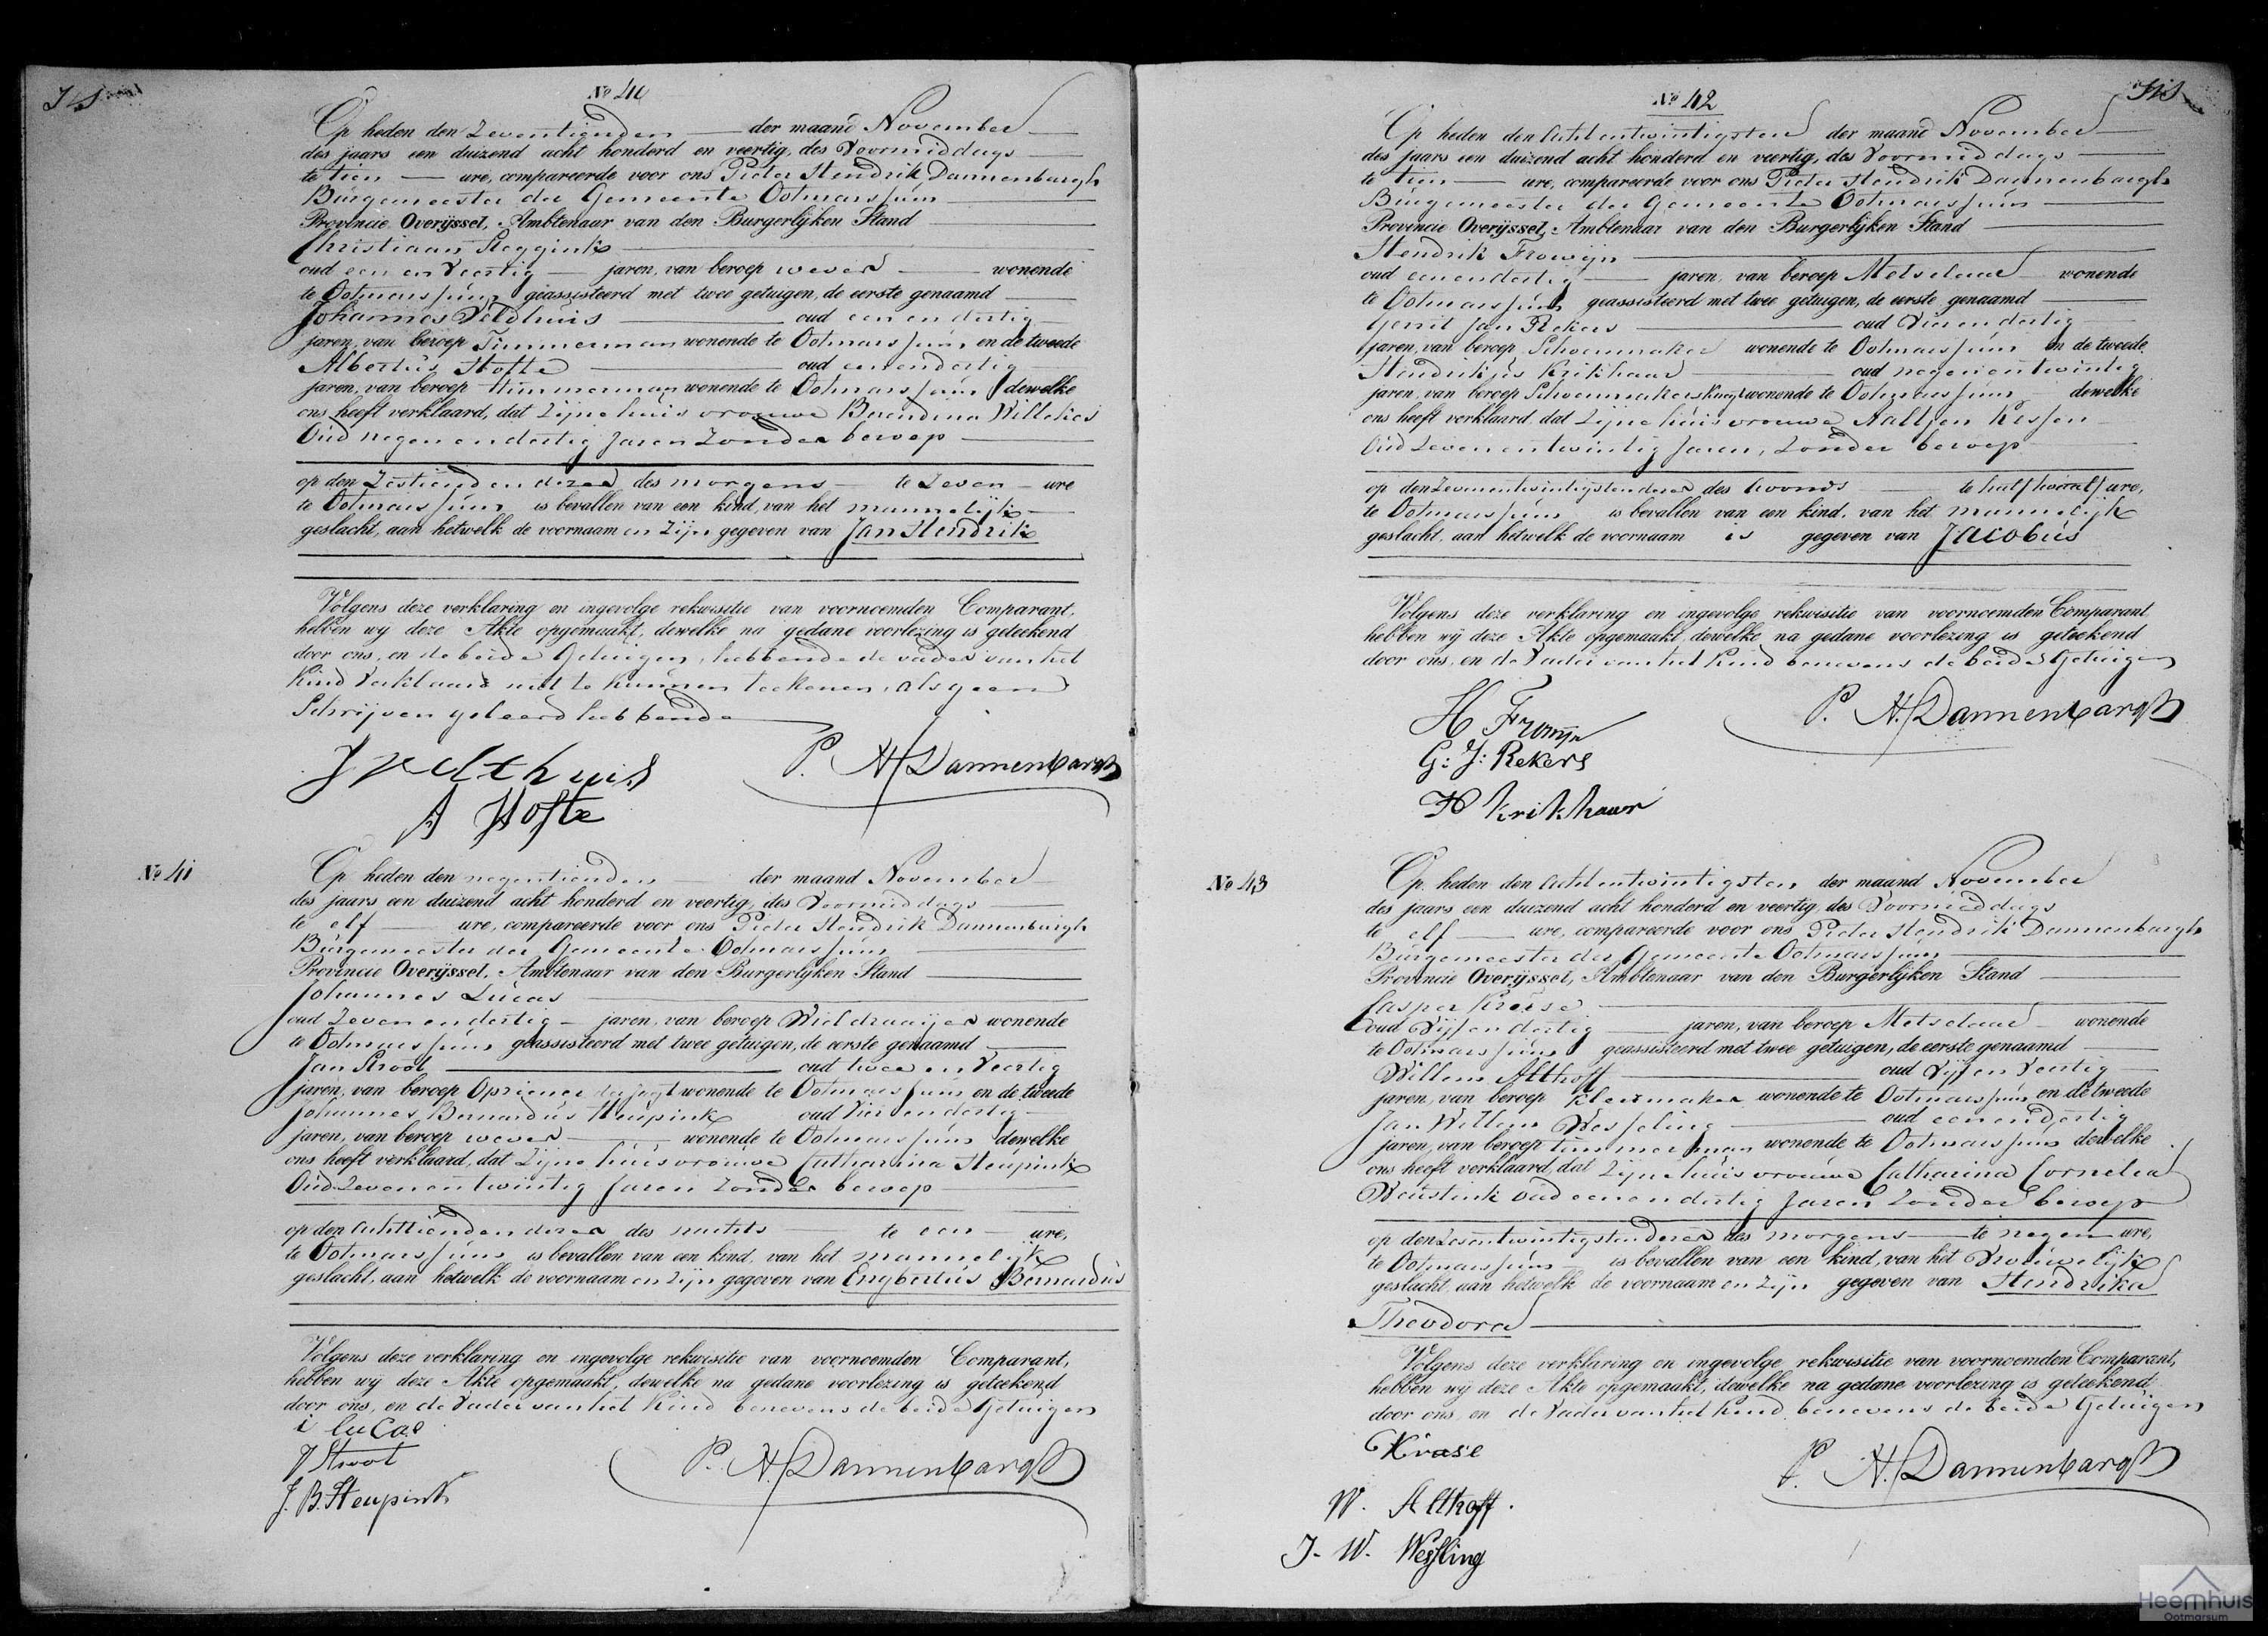 Nº 40
Op heden den Zeventienden der maand November
des jaars een duizend acht honderd en veertig, des Voormiddags
te tien ure, compareerde voor ons Pieter Hendrik Dannenbargh
Burgemeester der Gemeente Ootmarssum
Provincie Overijssel, Ambtenaar van den Burgerlijken Stand
Christiaan Steggink
oud een en Veertig jaren, van beroep wever wonende
te Ootmarssum geassisteerd met twee getuigen, de eerste genaamd
Johannes Veldhuis oud een en dertig
jaren, van beroep Timmerman wonende te Ootmarssum en de tweede
Albertus Hofte oud eenendertig
jaren, van beroep timmerman wonende te Ootmarssum dewelke
ons heeft verklaard, dat Zijne huisvrouwe Berendina Willekes
Oud negenendertig Jaren Zonder beroep
op den Zestienden dezer des morgens te Zeven ure
te Ootmarssum is bevallen van een kind, van het mannelijk
geslacht, aan hetwelk de voornaam en Zijn gegeven van Jan Hendrik
Volgens deze verklaring en ingevolge rekwisitie van voornoemden Comparant,
hebben wij deze Akte opgemaakt, dewelke na gedane voorlezing is geteekend
door ons, en de beide Getuigen, hebbende de vader van het
Kind Verklaard niet te kunnen teekenen, als geen
Schrijven geleerd hebbende
J Velthuis
P. H. Dannenbargh
A Hofte
Nº 41
Op heden den negentienden der maand November
des jaars een duizend acht honderd en veertig, des Voormiddags
te elf ure, compareerde voor ons Pieter Hendrik Dannenbargh
Burgemeester der Gemeente Ootmarssum
Provincie Overijssel, Ambtenaar van den Burgerlijken Stand
Johannes Lucas
oud Zeven en dertig jaren, van beroep Wieldraaijer wonende
te Ootmarssum geassisteerd met twee getuigen, de eerste genaamd
Jan Stroot oud twee en Veertig
jaren, van beroep Opziener der jagt wonende te Ootmarssum en de tweede
Johannes Bernardus Heupink oud Vier en dertig
jaren, van beroep wever wonende te Ootmarssum dewelke
ons heeft verklaard, dat Zijne huisvrouwe Catharina Heupink
Oud Zevenentwintig Jaren Zonder beroep
op den Achttienden dezer des nachts te een ure,
te Ootmarssum is bevallen van een kind, van het mannelijk
geslacht, aan hetwelk de voornaam en zijn gegeven van Engbertus Bernardus
Volgens deze verklaring en ingevolge rekwisitie van voornoemden Comparant,
hebben wij deze Akte opgemaakt, dewelke na gedane voorlezing is geteekend
door ons, en de Vader van het Kind benevens de beide Getuigen
i luCas
J Stroot
P. H. Dannenbargh
J. B. Heupink
Nº 42
Op heden den Achtentwintigsten der maand November
des jaars een duizend acht honderd en veertig, des Voormiddags
te tien ure, compareerde voor ons Pieter Hendrik Dannenbargh
Burgemeester der Gemeente Ootmarssum
Provincie Overijssel, Ambtenaar van den Burgerlijken Stand
Hendrik Frowijn
oud eenendertig jaren, van beroep Metselaar wonende
te Ootmarssum geassisteerd met twee getuigen, de eerste genaamd
Gerrit Jan Rekers oud Vierendertig
jaren, van beroep Schoenmaker wonende te Ootmarssum en de tweede
Hendrikus Krikhaar oud negenentwintig
jaren, van beroep Schoenmakersknegt wonende te Ootmarssum dewelke
ons heeft verklaard, dat Zijne huisvrouwe Aaltjen Kessen
Oud Zevenentwintig Jaren, Zonder beroep
op den Zevenentwintigsten dezer des avonds te half ure,
te Ootmarssum is bevallen van een kind, van het mannelijk
geslacht, aan hetwelk de voornaam is gegeven van Jacobus
Volgens deze verklaring en ingevolge rekwisitie van voornoemden Comparant
hebben wij deze Akte opgemaakt, dewelke na gedane voorlezing is geteekend
door ons, en de Vader van het Kind benevens de beide Getuigen
H Frowijn
P. H. Dannenbargh
G: J: Rekers
H Krikhaar
Nº 43
Op heden den Achtentwintigsten der maand November
des jaars een duizend acht honderd en veertig, des Voormiddags
te elf ure, compareerde voor ons Pieter Hendrik Dannenbargh
Burgemeester der Gemeente Ootmarssum
Provincie Overijssel, Ambtenaar van den Burgerlijken Stand
Casper Kroese
oud Vijfendertig jaren, van beroep Metselaar wonende
te Ootmarssum geassisteerd met twee getuigen, de eerste genaamd
Willem Althoff oud Vijf en Veertig
jaren, van beroep Kleermaker wonende te Ootmarssum en de tweede
Jan Willem Wesseling oud eenendertig
jaren, van beroep timmerman wonende te Ootmarssum dewelke
ons heeft verklaard, dat Zijne huisvrouwe Catharina Cornelia
Weustink oud eenendertig Jaren Zonder beroep
op den Zesentwintigsten dezer des morgens te negen ure,
te Ootmarssum is bevallen van een kind, van het Vrouwelijk
geslacht, aan hetwelk de voornaam en Zijn gegeven van Hendrika
Theodora
Volgens deze verklaring en ingevolge rekwisitie van voornoemden Comparant,
hebben wij deze Akte opgemaakt, dewelke na gedane voorlezing is geteekend
door ons, en de Vader van het Kind benevens de beide Getuigen
C Kroese
P. H. Dannenbargh
W. Althoff.
J. W. Wessling
Heemhuis
Ootmarsum